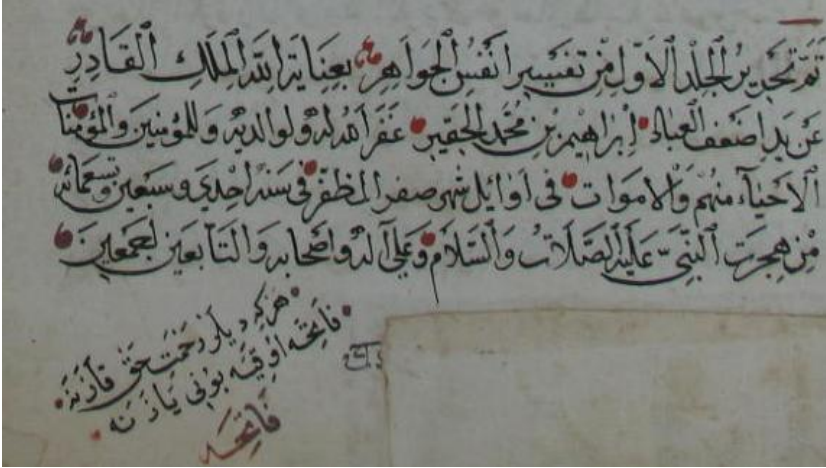 تَمَّ تَحْرِيرُ الْجِلْدِ الْاَوَّلِ مِنْ تَفْسِيرِ اَنْفَسِ الْجَوَاهِرِ بِعِنَايَةِ اللهِ الْمَلِكِ الْقَادِرِ
عَنْ يَدِ اَضْعَفِ الْعِبَادِ اِبْرَاهِيمَ بْنِ مُحَمَّدِ الْحَقِيرِ غَفَرَ اللهُ لَهُ وَلِوَالِدَيْهِ وَلِلْمُؤْمِنِينَ وَالْمُؤْمِنَاتِ
الْاَحْيَآءِ مِنْهُمْ وَالْاَمْوَاتِ فى اَوَائِلِ شَهْرِ صَفَرِ الْمُظَفَّرِ فى سَنَةِ اِحْدَى وَسَبْعِينَ وَتِسْعِمِائَةِ
مِنْ هِجْرَتِ النَّبِىِّ عَلَيْهِ الصَّلَاتُ وَالسَّلَامُ وَعَلَى آلِهِ وَاَصْحَابِهِ وَالتَّابِعِينَ اَجْمَعِينَ
هركه ديلر رحمت حق قازنه
فاتحه اوقيه بونى يازنه
فاتحه